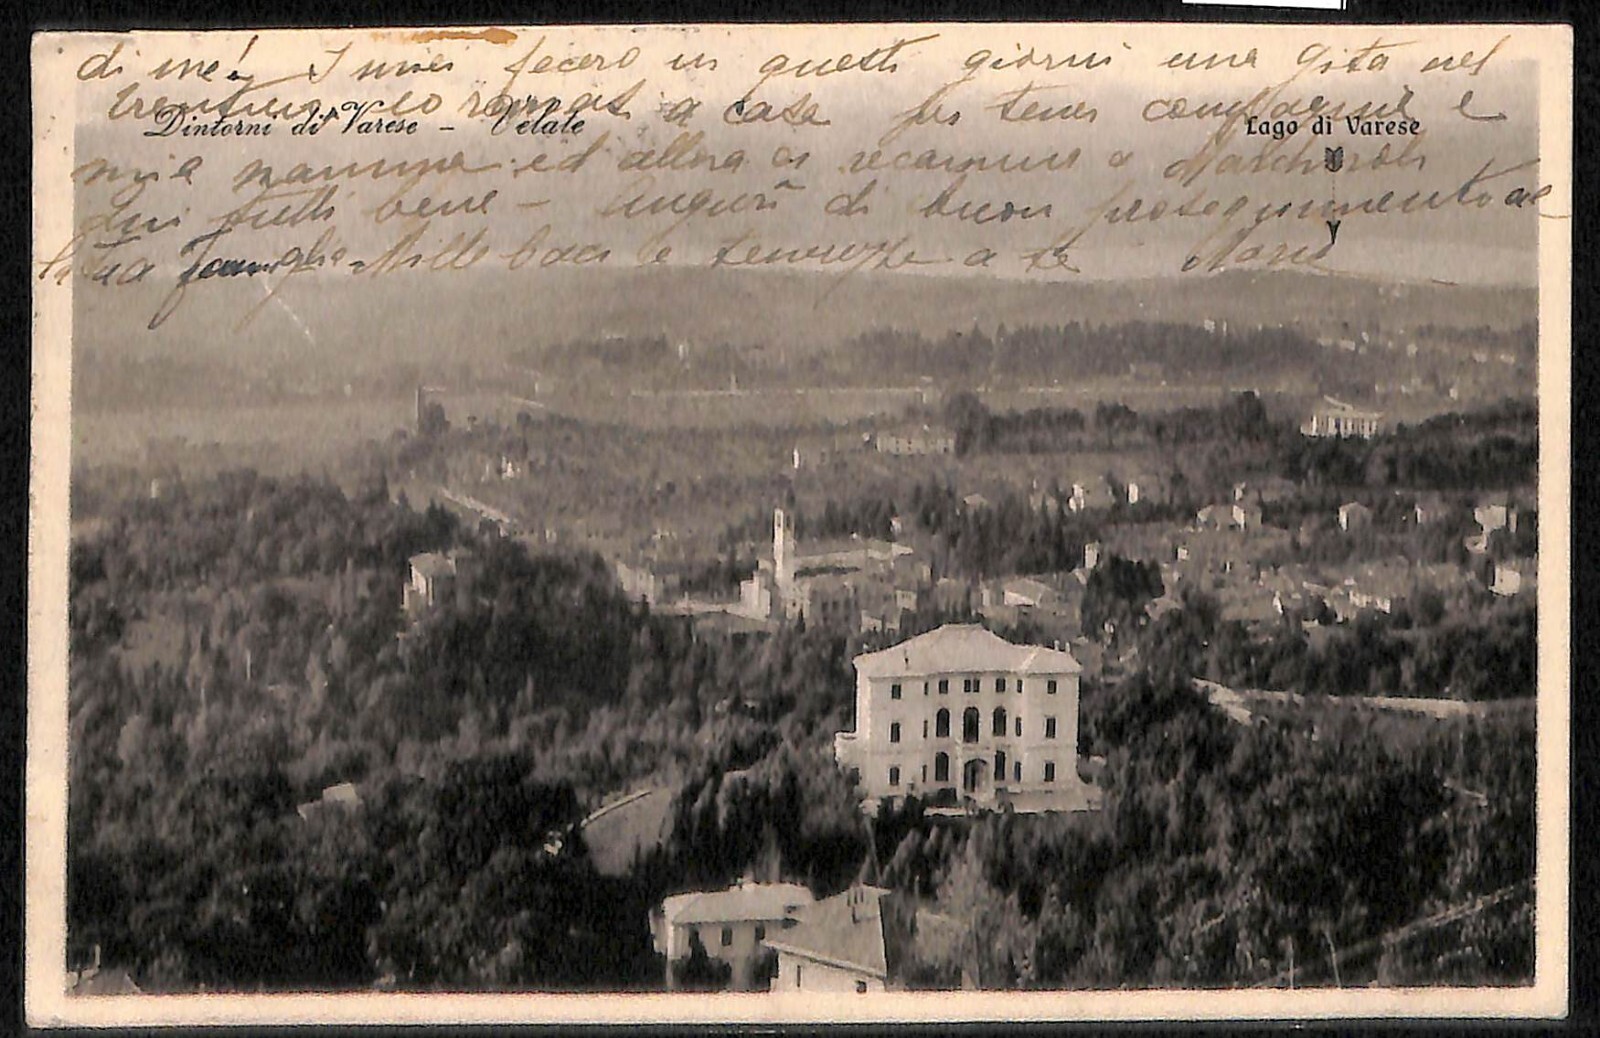 di me! I miei fecero in questi giorni una gita nel
trentino io rimasi a casa per tener compagnia e
Dintorni di Varese - Velate
Lago di Varese
mia mamma ed allora ci recammo a
qui tutti bene - Auguri di buon proseguimento
la tua famiglia Mille baci e tenerezze a te Maria